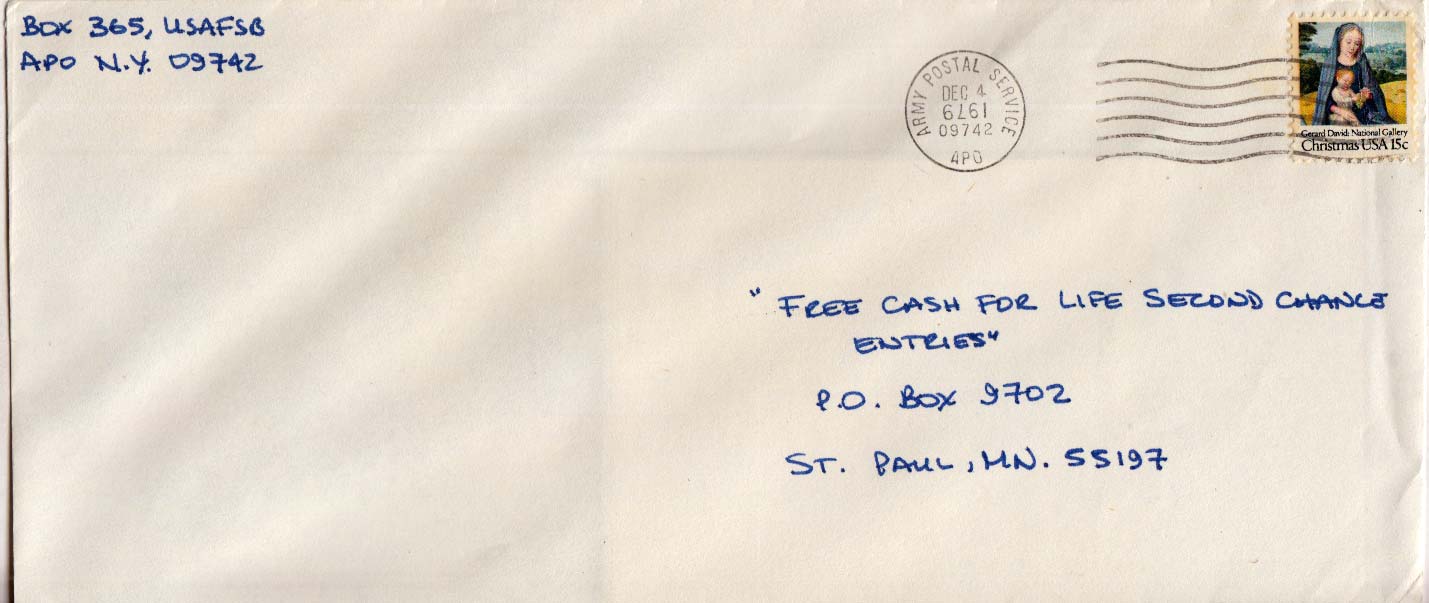 BOX 365, USAFSB
APO N.Y. 09742
ARMY POSTAL SERVICE
DEC 4
1979
09742
APO
Gerard David: National Gallery
Christmas USA 15c
"FREE CASH FOR LIFE SECOND CHANCE
ENTRIES"
P.O. BOX 9702
ST. PAUL, MN. 55197